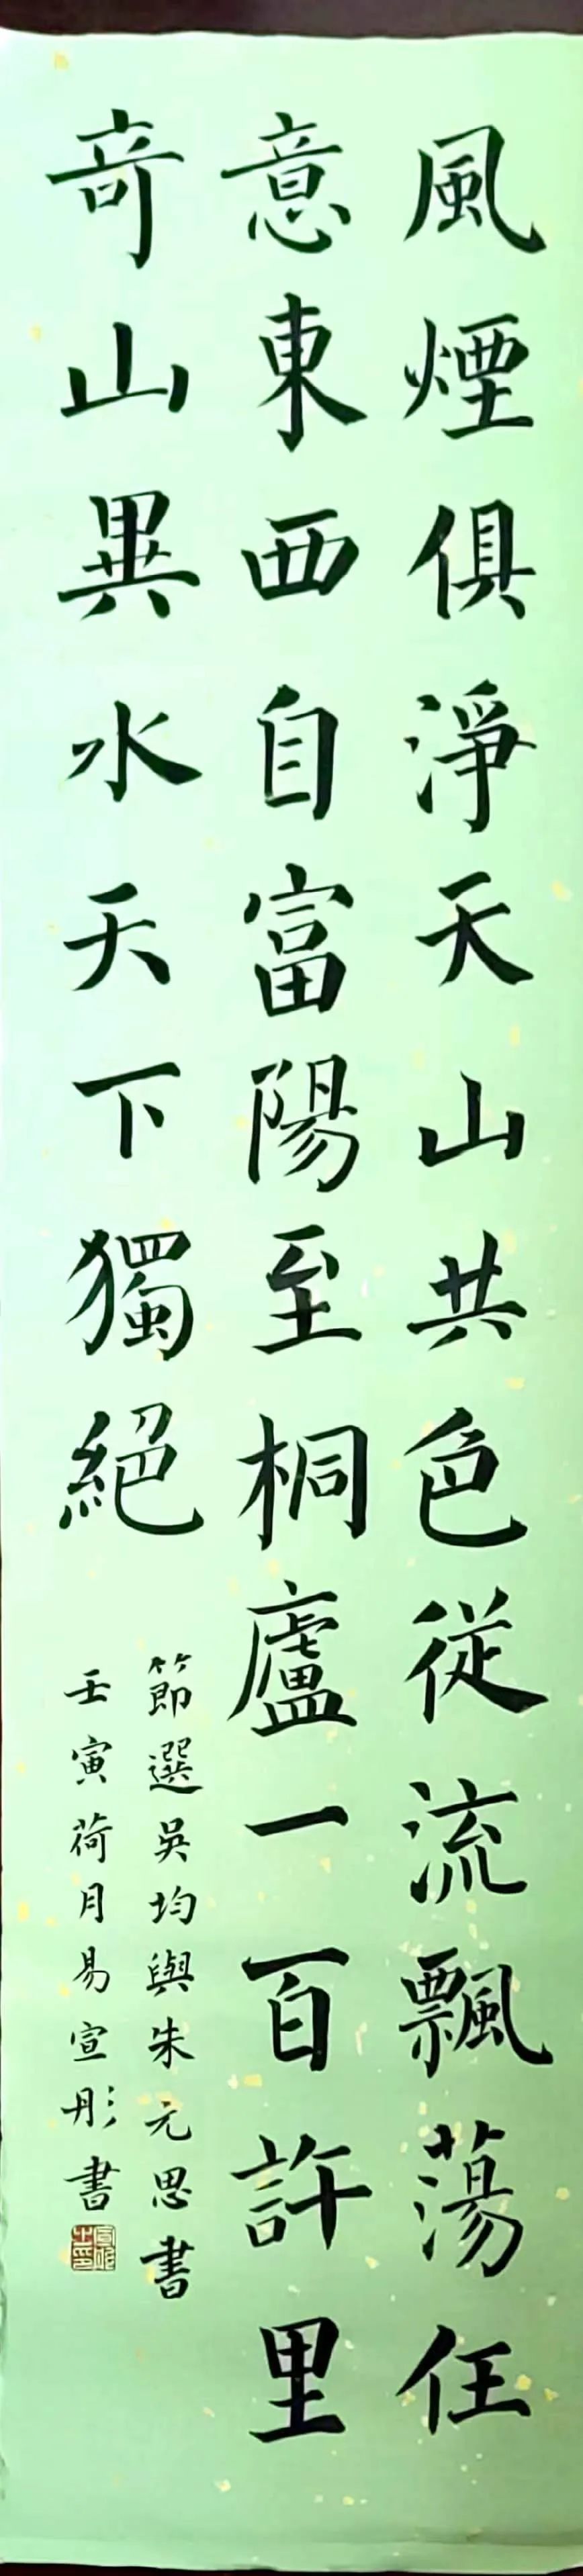 風煙俱淨天山共色從流飄蕩任
意東西自富陽至桐廬一百許里
奇山異水天下獨絕
節選吳均與朱元思書
壬寅荷月易宣彤書